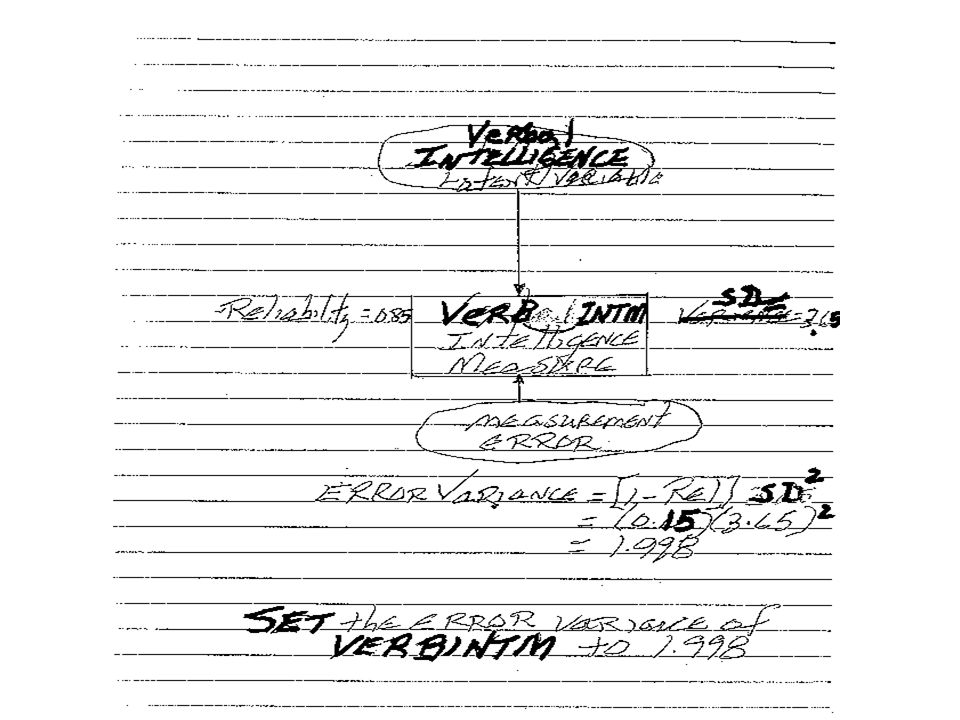 Verbal
INTELLIGENCE
Latent Variable
Reliability = 0.85
VERBal INTM
INTelligENCE
MeaSURE
SD
VARIANCE = 3.65
MEASUREMENT
ERROR
ERROR VARIANCE = [1-Rel] SD²
= (0.15)(3.65)²
= 1.998
SET the ERROR VARIANCE of
VERBINTM to 1.998